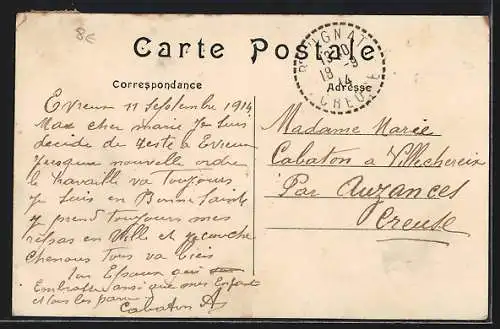 8€
Carte Postale
Correspondance
Adresse
R IGNAT
1330
19 -9
14
CREUSE
Evreux 11 Septembre 1914
Max cher marie Je suis
decide de reste a Evreux
Jusquau nouvelle ordre
le travaille va Toujours
Je suis en Bonne Sante
y prend Toujours mes
repas en Ville et y couche
chenous Tous va bien
Ton Epoux qui
Embrasse ansi que mes Enfants
et tous les parents
Cabaton A
Madame Marie
Cabaton a Villecherein
Par Auzances
Creuse